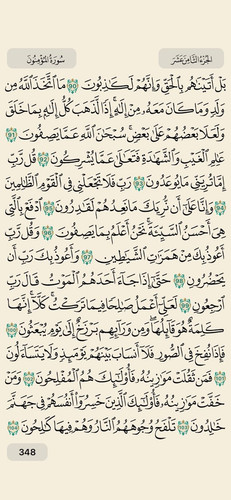 سُورَةُ المُؤْمِنُونَ
الجُزءُ الثَّامِنَ عَشَرَ
بَلْ أَتَيْنَٰهُم بِٱلْحَقِّ وَإِنَّهُمْ لَكَٰذِبُونَ 90 مَا ٱتَّخَذَ ٱللَّهُ مِن
وَلَدٍ وَمَا كَانَ مَعَهُۥ مِنْ إِلَٰهٍ ۚ إِذًا لَّذَهَبَ كُلُّ إِلَٰهٍۭ بِمَا خَلَقَ
وَلَعَلَا بَعْضُهُمْ عَلَىٰ بَعْضٍ ۚ سُبْحَٰنَ ٱللَّهِ عَمَّا يَصِفُونَ 91
عَٰلِمِ ٱلْغَيْبِ وَٱلشَّهَٰدَةِ فَتَعَٰلَىٰ عَمَّا يُشْرِكُونَ 92 قُل رَّبِّ
إِمَّا تُرِيَنِّى مَا يُوعَدُونَ 93 رَبِّ فَلَا تَجْعَلْنِى فِى ٱلْقَوْمِ ٱلظَّٰلِمِينَ
94 وَإِنَّا عَلَىٰٓ أَن نُّرِيَكَ مَا نَعِدُهُمْ لَقَٰدِرُونَ 95 ٱدْفَعْ بِٱلَّتِى
هِىَ أَحْسَنُ ٱلسَّيِّئَةَ ۚ نَحْنُ أَعْلَمُ بِمَا يَصِفُونَ 96 وَقُل رَّبِّ
أَعُوذُ بِكَ مِنْ هَمَزَٰتِ ٱلشَّيَٰطِينِ 97 وَأَعُوذُ بِكَ رَبِّ أَن
يَحْضُرُونِ 98 حَتَّىٰٓ إِذَا جَآءَ أَحَدَهُمُ ٱلْمَوْتُ قَالَ رَبِّ
ٱرْجِعُونِ 99 لَعَلِّىٓ أَعْمَلُ صَٰلِحًا فِيمَا تَرَكْتُ ۚ كَلَّآ ۚ إِنَّهَا
كَلِمَةٌ هُوَ قَآئِلُهَا ۖ وَمِن وَرَآئِهِم بَرْزَخٌ إِلَىٰ يَوْمِ يُبْعَثُونَ 100
فَإِذَا نُفِخَ فِى ٱلصُّورِ فَلَآ أَنسَابَ بَيْنَهُمْ يَوْمَئِذٍ وَلَا يَتَسَآءَلُونَ
101 فَمَن ثَقُلَتْ مَوَٰزِينُهُۥ فَأُو۟لَٰٓئِكَ هُمُ ٱلْمُفْلِحُونَ 102 وَمَنْ
خَفَّتْ مَوَٰزِينُهُۥ فَأُو۟لَٰٓئِكَ ٱلَّذِينَ خَسِرُوٓا۟ أَنفُسَهُمْ فِى جَهَنَّمَ
خَٰلِدُونَ 103 تَلْفَحُ وُجُوهَهُمُ ٱلنَّارُ وَهُمْ فِيهَا كَٰلِحُونَ 104
348